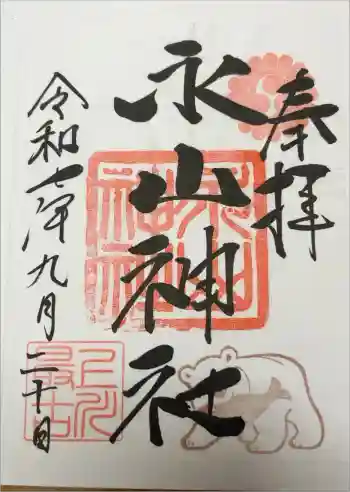 奉拝
永山神社
令和七年九月二十日